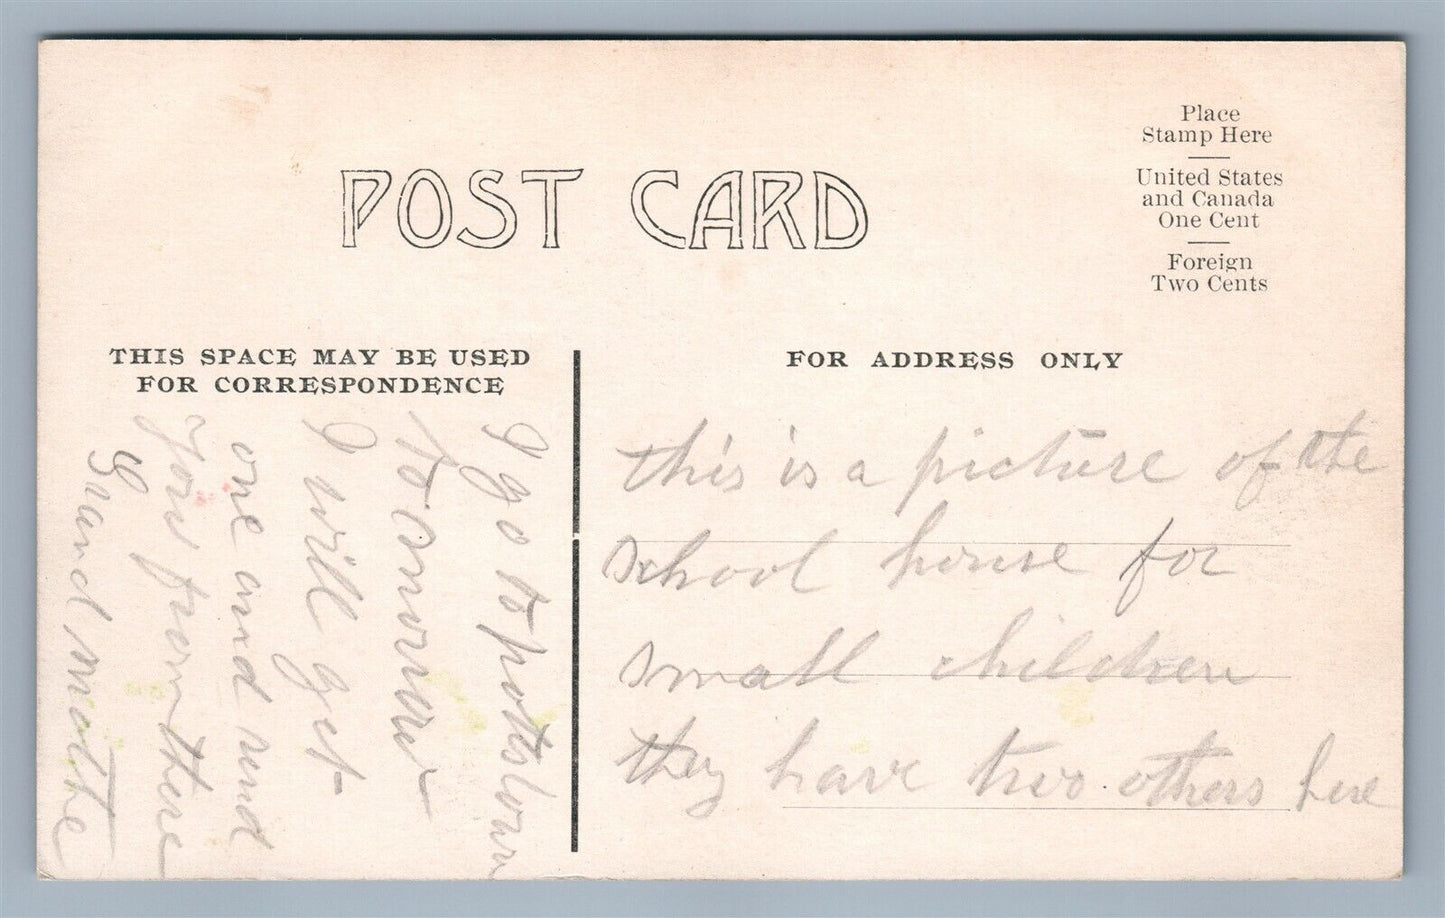 POST CARD
Place
Stamp Here
United States
and Canada
One Cent
Foreign
Two Cents
THIS SPACE MAY BE USED
FOR CORRESPONDENCE
FOR ADDRESS ONLY
I go to pottstown
To morrow
I will get
one and send
you from there
Grand mothe
this is a picture of the
school house for
small children
they have two others here